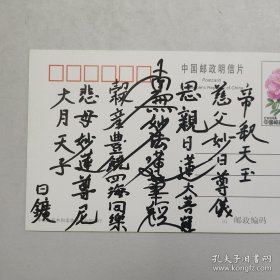 中国邮政明信片
Postcard
帝釈天王
慈父妙日尊儀
思親日蓮大菩薩
南無妙法蓮華経
穀産豊饒四海同楽
悲母妙蓮尊尼
大月天子
日鑛
邮政编码